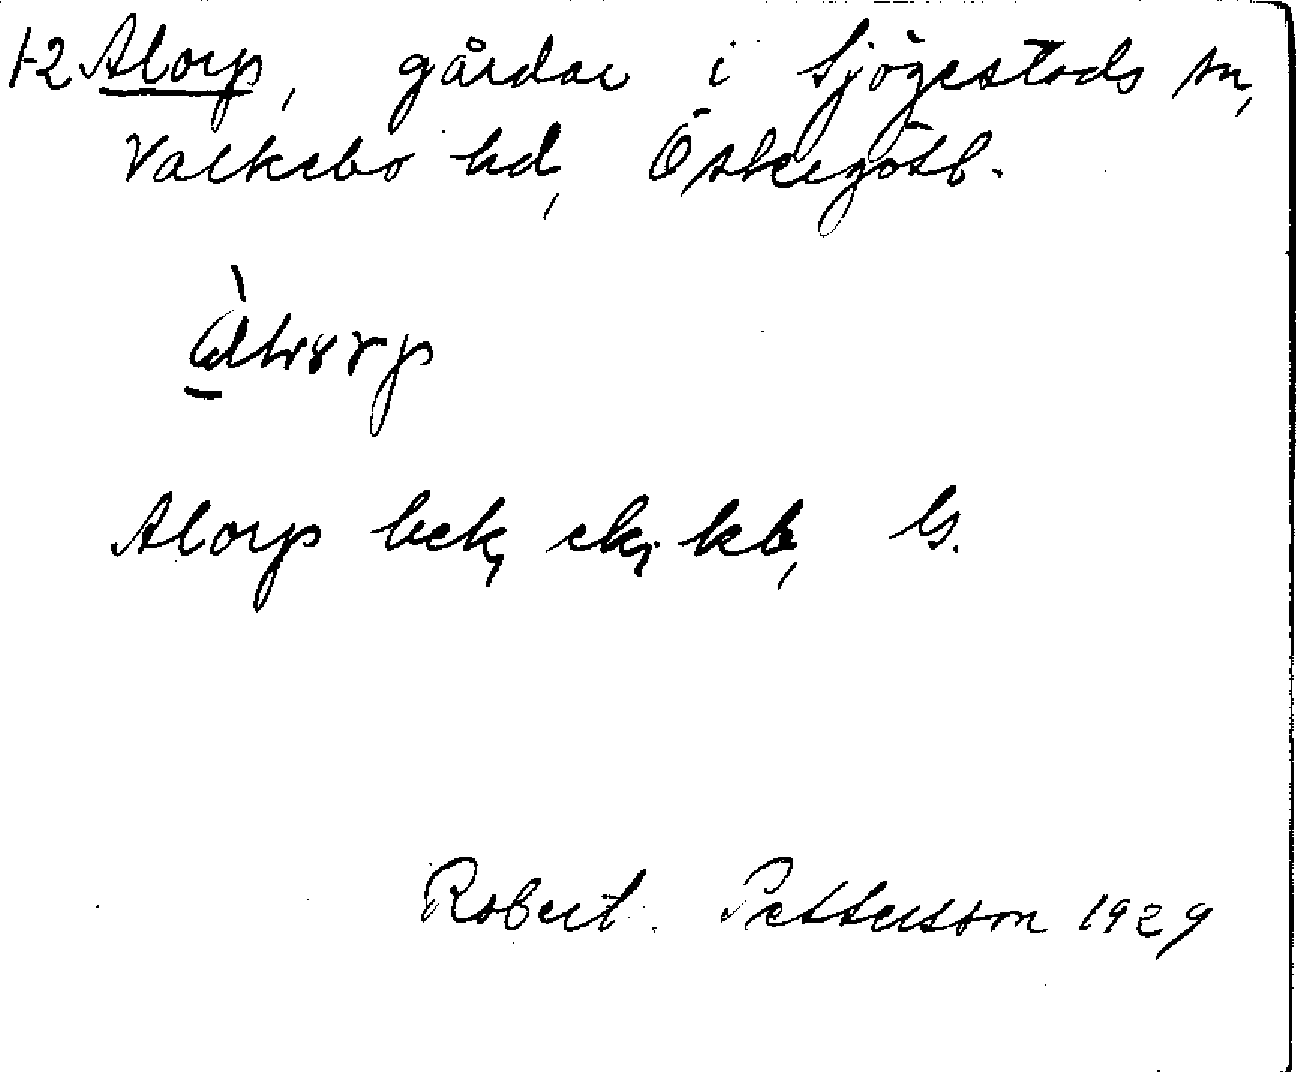 1-2 Alorp, gårdar i Sjögestads sn,
Valkebo hd, Östergötl.
Alorp bek, ek, kb, G.
Robert Pettersson 1929